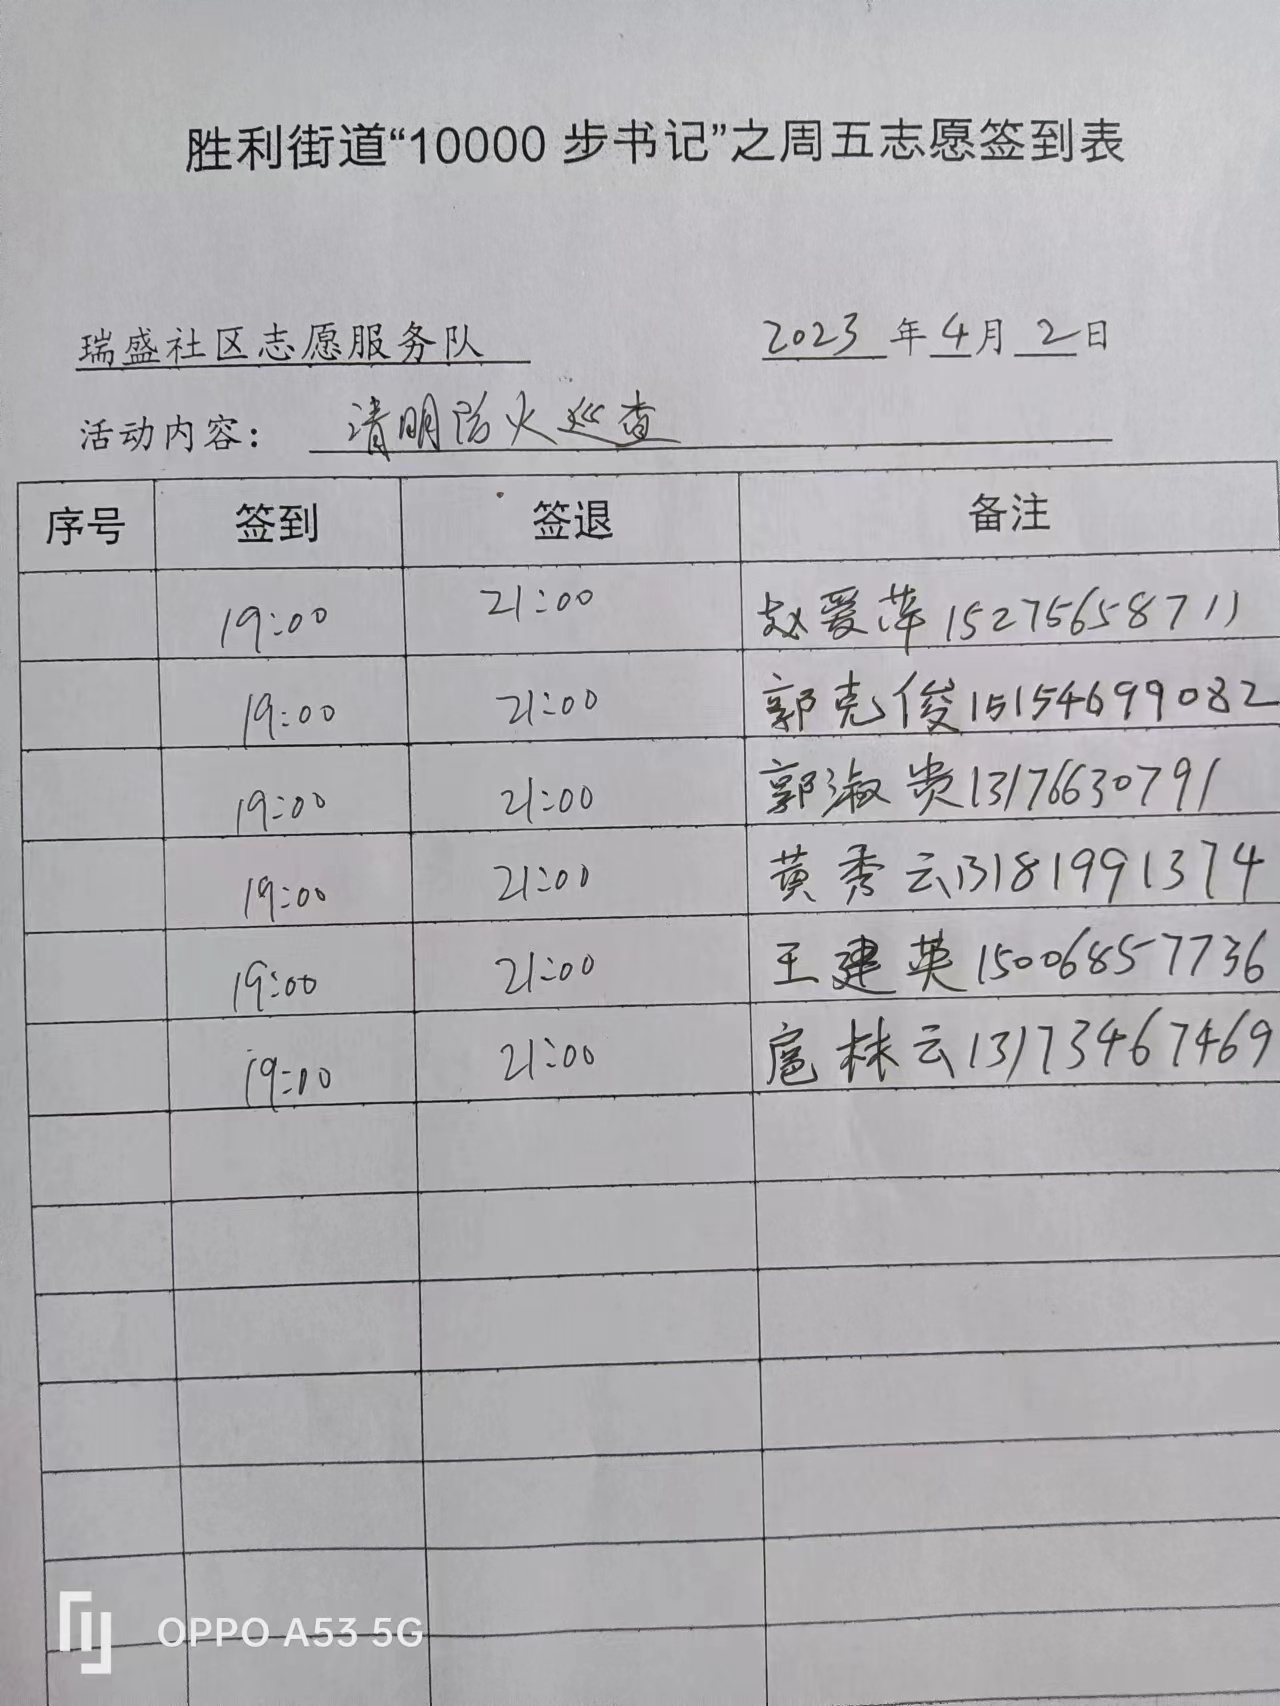 胜利街道“10000 步书记”之周五志愿签到表
瑞盛社区志愿服务队 2023 年 4 月 2 日
活动内容： 清明防火巡查
序号 签到 签退 备注
19:00 21:00 赵爱萍 15275658711
19:00 21:00 郭克俊 15154699082
19:00 21:00 郭淑贵 13176630791
19:00 21:00 黄秀云 13181991374
19:00 21:00 王建英 15006857736
19:00 21:00 扈林云 13173467469
OPPO A53 5G